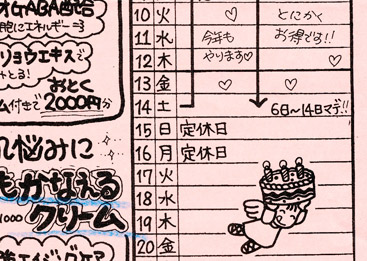 オGABA配合
胞にエネルギー
リョウエキスで
とる!
おとく
ム付きで2000円分
肌悩みに
もかなえる
1000 クリーム
エイジングケア
10 火 ♡ とにかく
11 水 今年も お得です!!
12 木 やります♡ ♡
13 金 ♡ ♡
14 土 6日~14日マデ!!
15 日 定休日
16 月 定休日
17 火
18 水
19 木
20 金